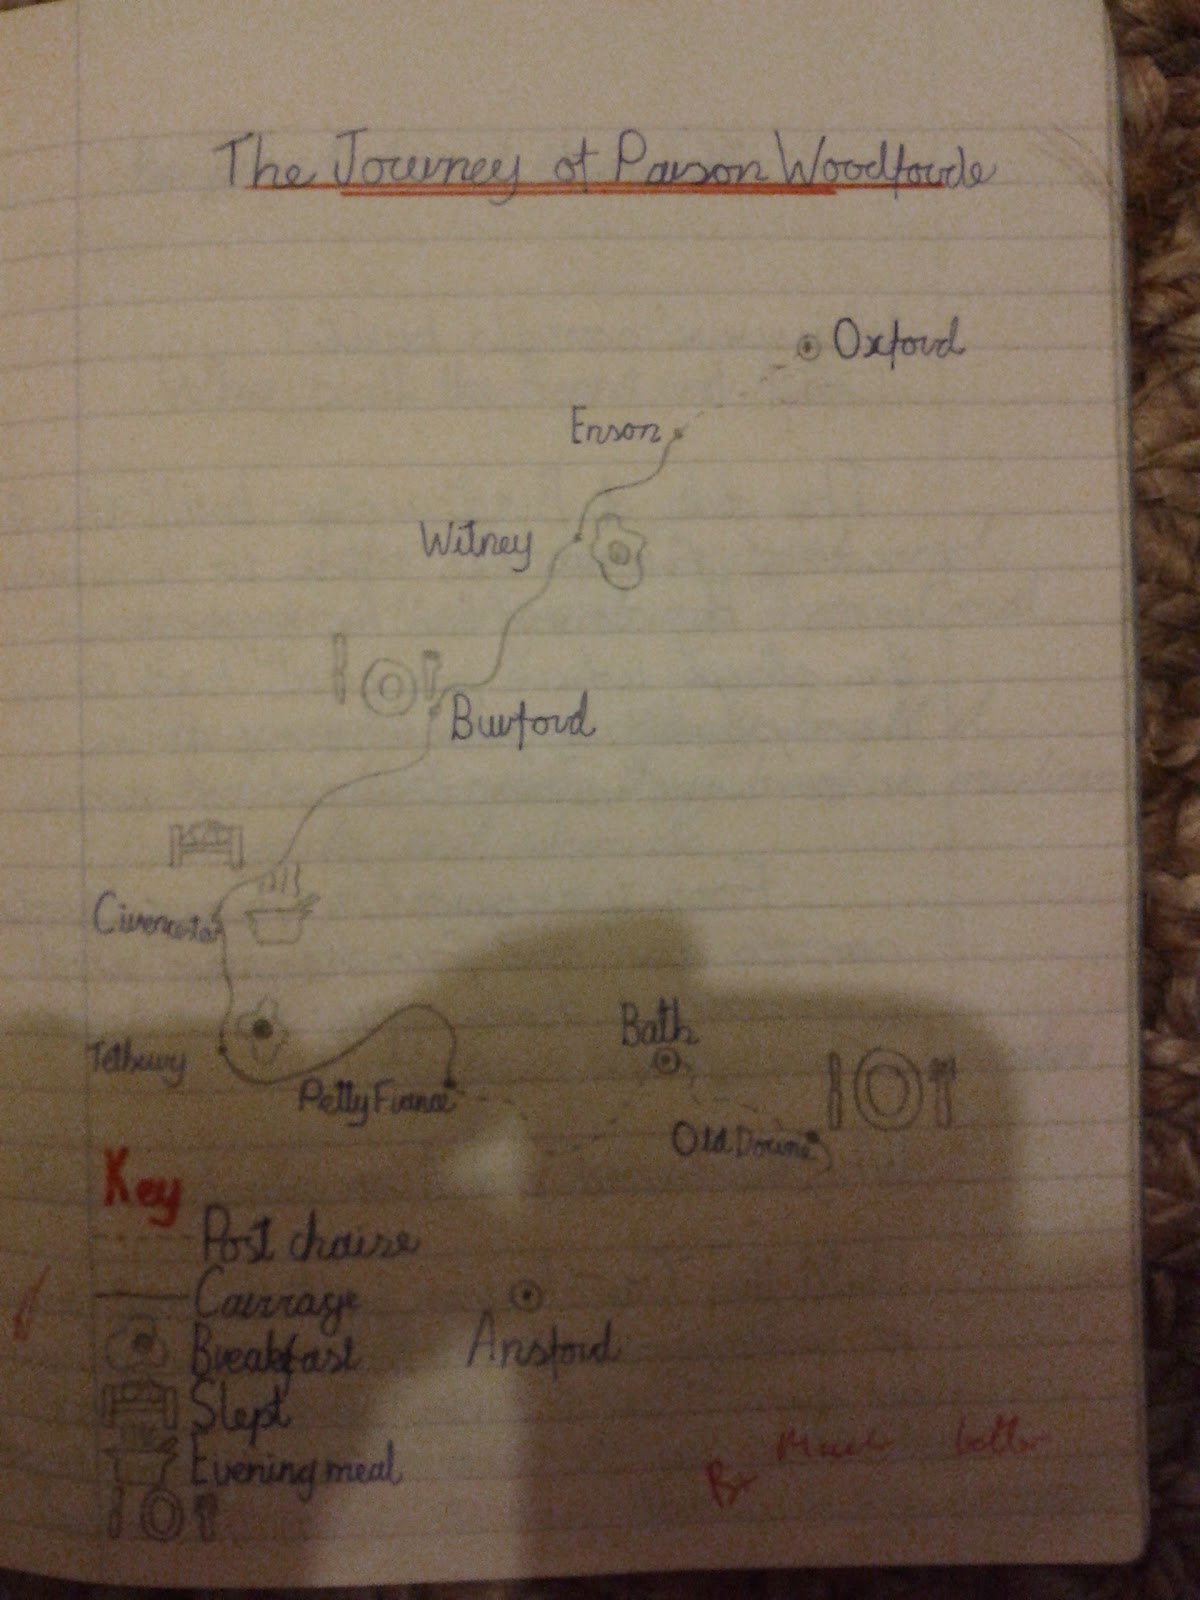 The Journey of Parson Woodforde
Oxford
Enson
Witney
Burford
Cirencester
Tetbury
Petty France
Bath
Old Downe
Key
Post chaise
Carrage
Breakfast
Slept
Evening meal
Ansford
Much better
B+